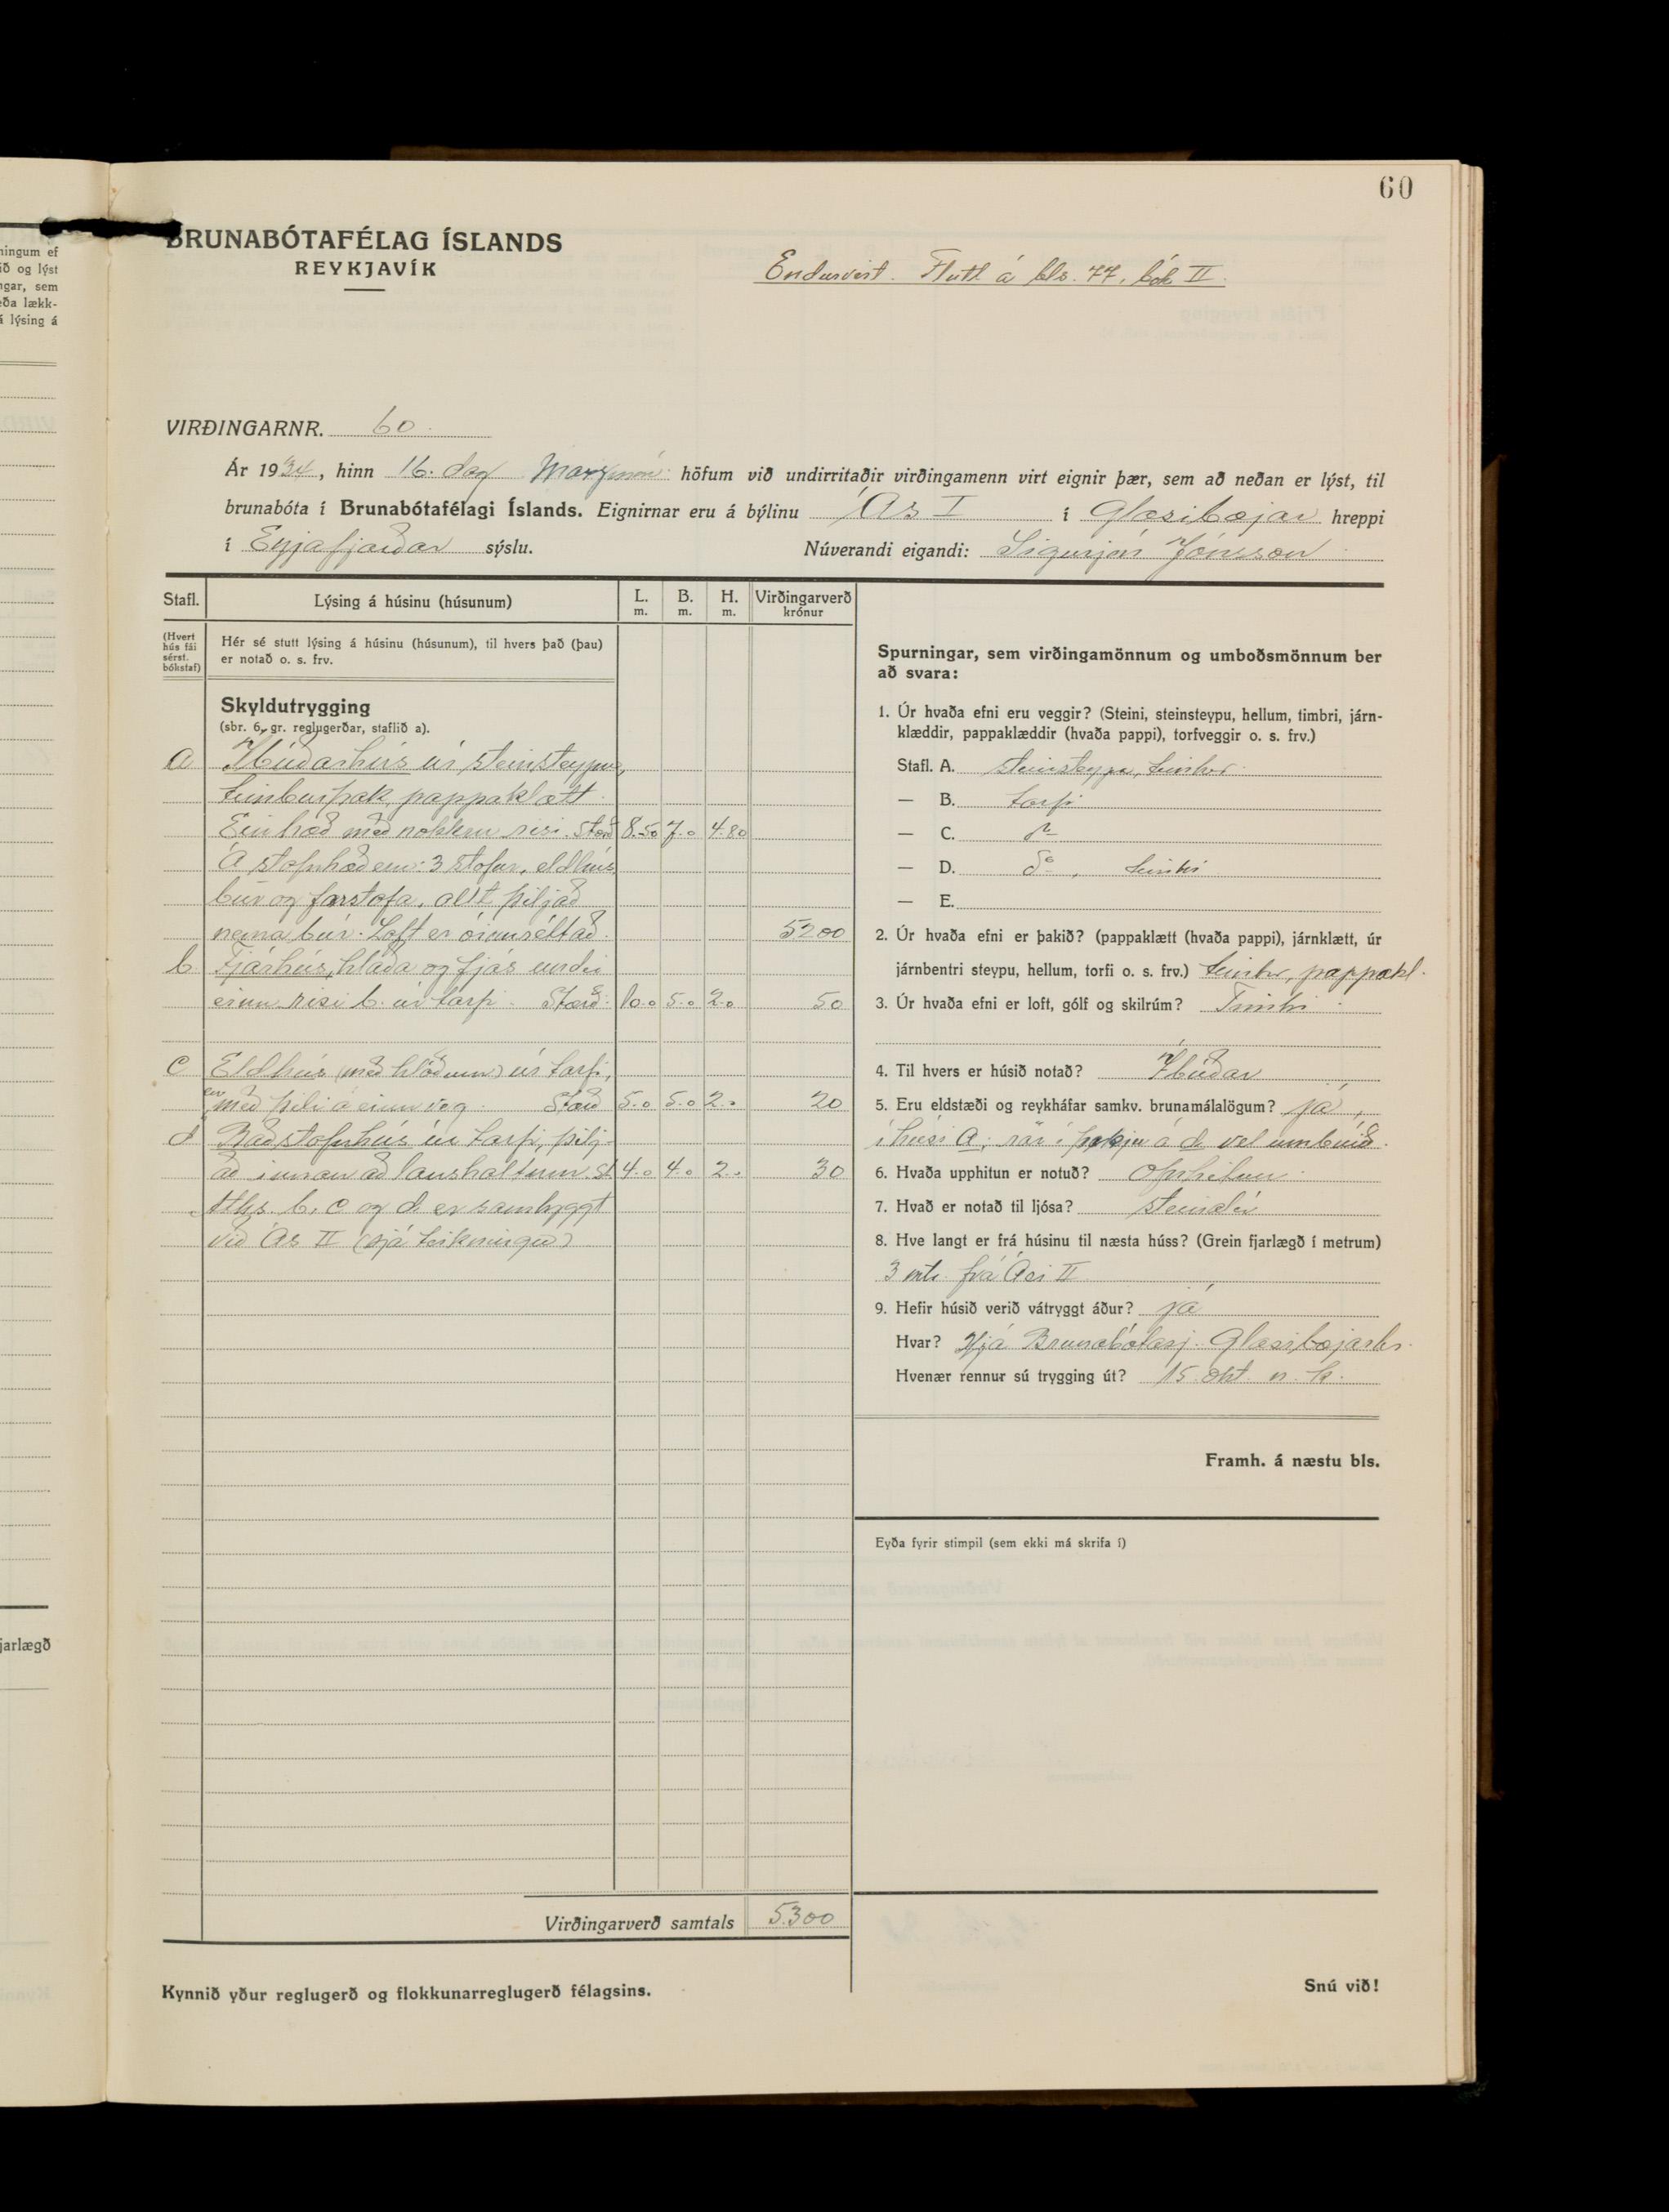 60
BRUNABÓTAFÉLAG ÍSLANDS
REYKJAVÍK
Endurvirt. Flutt á bls. 77, bók II.
VIRÐINGARNR. 60
Ár 1934, hinn 16. dag höfum við undirritaðir virðingamenn virt eignir þær, sem að neðan er lýst, til
brunabóta í Brunabótafélagi Íslands. Eignirnar eru á býlinu Ás I í Glæsibæjar hreppi
í Eyjafjarðar sýslu. Núverandi eigandi: Sigurjón Jónsson
Stafl. Lýsing á húsinu (húsunum) L. m. B. m. H. m. Virðingarverð krónur
(Hvert hús fái sérst. bókstaf)
Hér sé stutt lýsing á húsinu (húsunum), til hvers það (þau)
er notað o. s. frv.
Skyldutrygging
(sbr. 6. gr. reglugerðar, staflið a).
a Íbúðarhús úr steinsteypu,
timburþak, pappaklætt.
Einhæð með nokkru risi. Stærð 8.50 7.0 4.80
Á stofuhæð eru: 3 stofur, eldhús
búr og forstofa, allt þiljað
nema búr. Loft er óinnréttað. 5200
b Fjárhús, hlaða og fjós undir
einu risi b. úr torfi. Stærð: 10.0 5.0 2.0 50
c Eldhús (með hlóðum) úr torfi,
en með þili á einn veg. Stærð 5.0 5.0 2.0 20
d Baðstofuhús úr torfi, þilj-
að innan að lausholtum. St. 4.0 4.0 2.0 30
Aths. b, c og d er sambyggt
við Ás II (sjá teikningu)
Virðingarverð samtals 5300
Kynnið yður reglugerð og flokkunarreglugerð félagsins.
Spurningar, sem virðingamönnum og umboðsmönnum ber
að svara:
1. Úr hvaða efni eru veggir? (Steini, steinsteypu, hellum, timbri, járn-
klæddir, pappaklæddir (hvaða pappi), torfveggir o. s. frv.)
Stafl. A. steinsteypu, timbur.
— B. torfi
— C. do
— D. do, timbri
— E.
2. Úr hvaða efni er þakið? (pappaklætt (hvaða pappi), járnklætt, úr
járnbentri steypu, hellum, torfi o. s. frv.) timbur, pappakl.
3. Úr hvaða efni er loft, gólf og skilrúm? Timbri
4. Til hvers er húsið notað? Íbúðar
5. Eru eldstæði og reykháfar samkv. brunamálalögum? já,
í húsi A; rör í þekju á d vel umbúið.
6. Hvaða upphitun er notuð? Ofnhitun
7. Hvað er notað til ljósa? steinolía
8. Hve langt er frá húsinu til næsta húss? (Grein fjarlægð í metrum)
3 mtr. frá Ási II
9. Hefir húsið verið vátryggt áður? já
Hvar? Hjá Brunabótasj. Glæsibæjarhr.
Hvenær rennur sú trygging út? 15. okt. n. k.
Framh. á næstu bls.
Eyða fyrir stimpil (sem ekki má skrifa í)
Snú við!
ningum ef
ið og lýst
ngar, sem
eða lækk-
á lýsing á
jarlægð